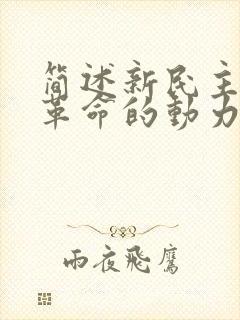 简述新民主
革命的動力
雨夜飛鷹